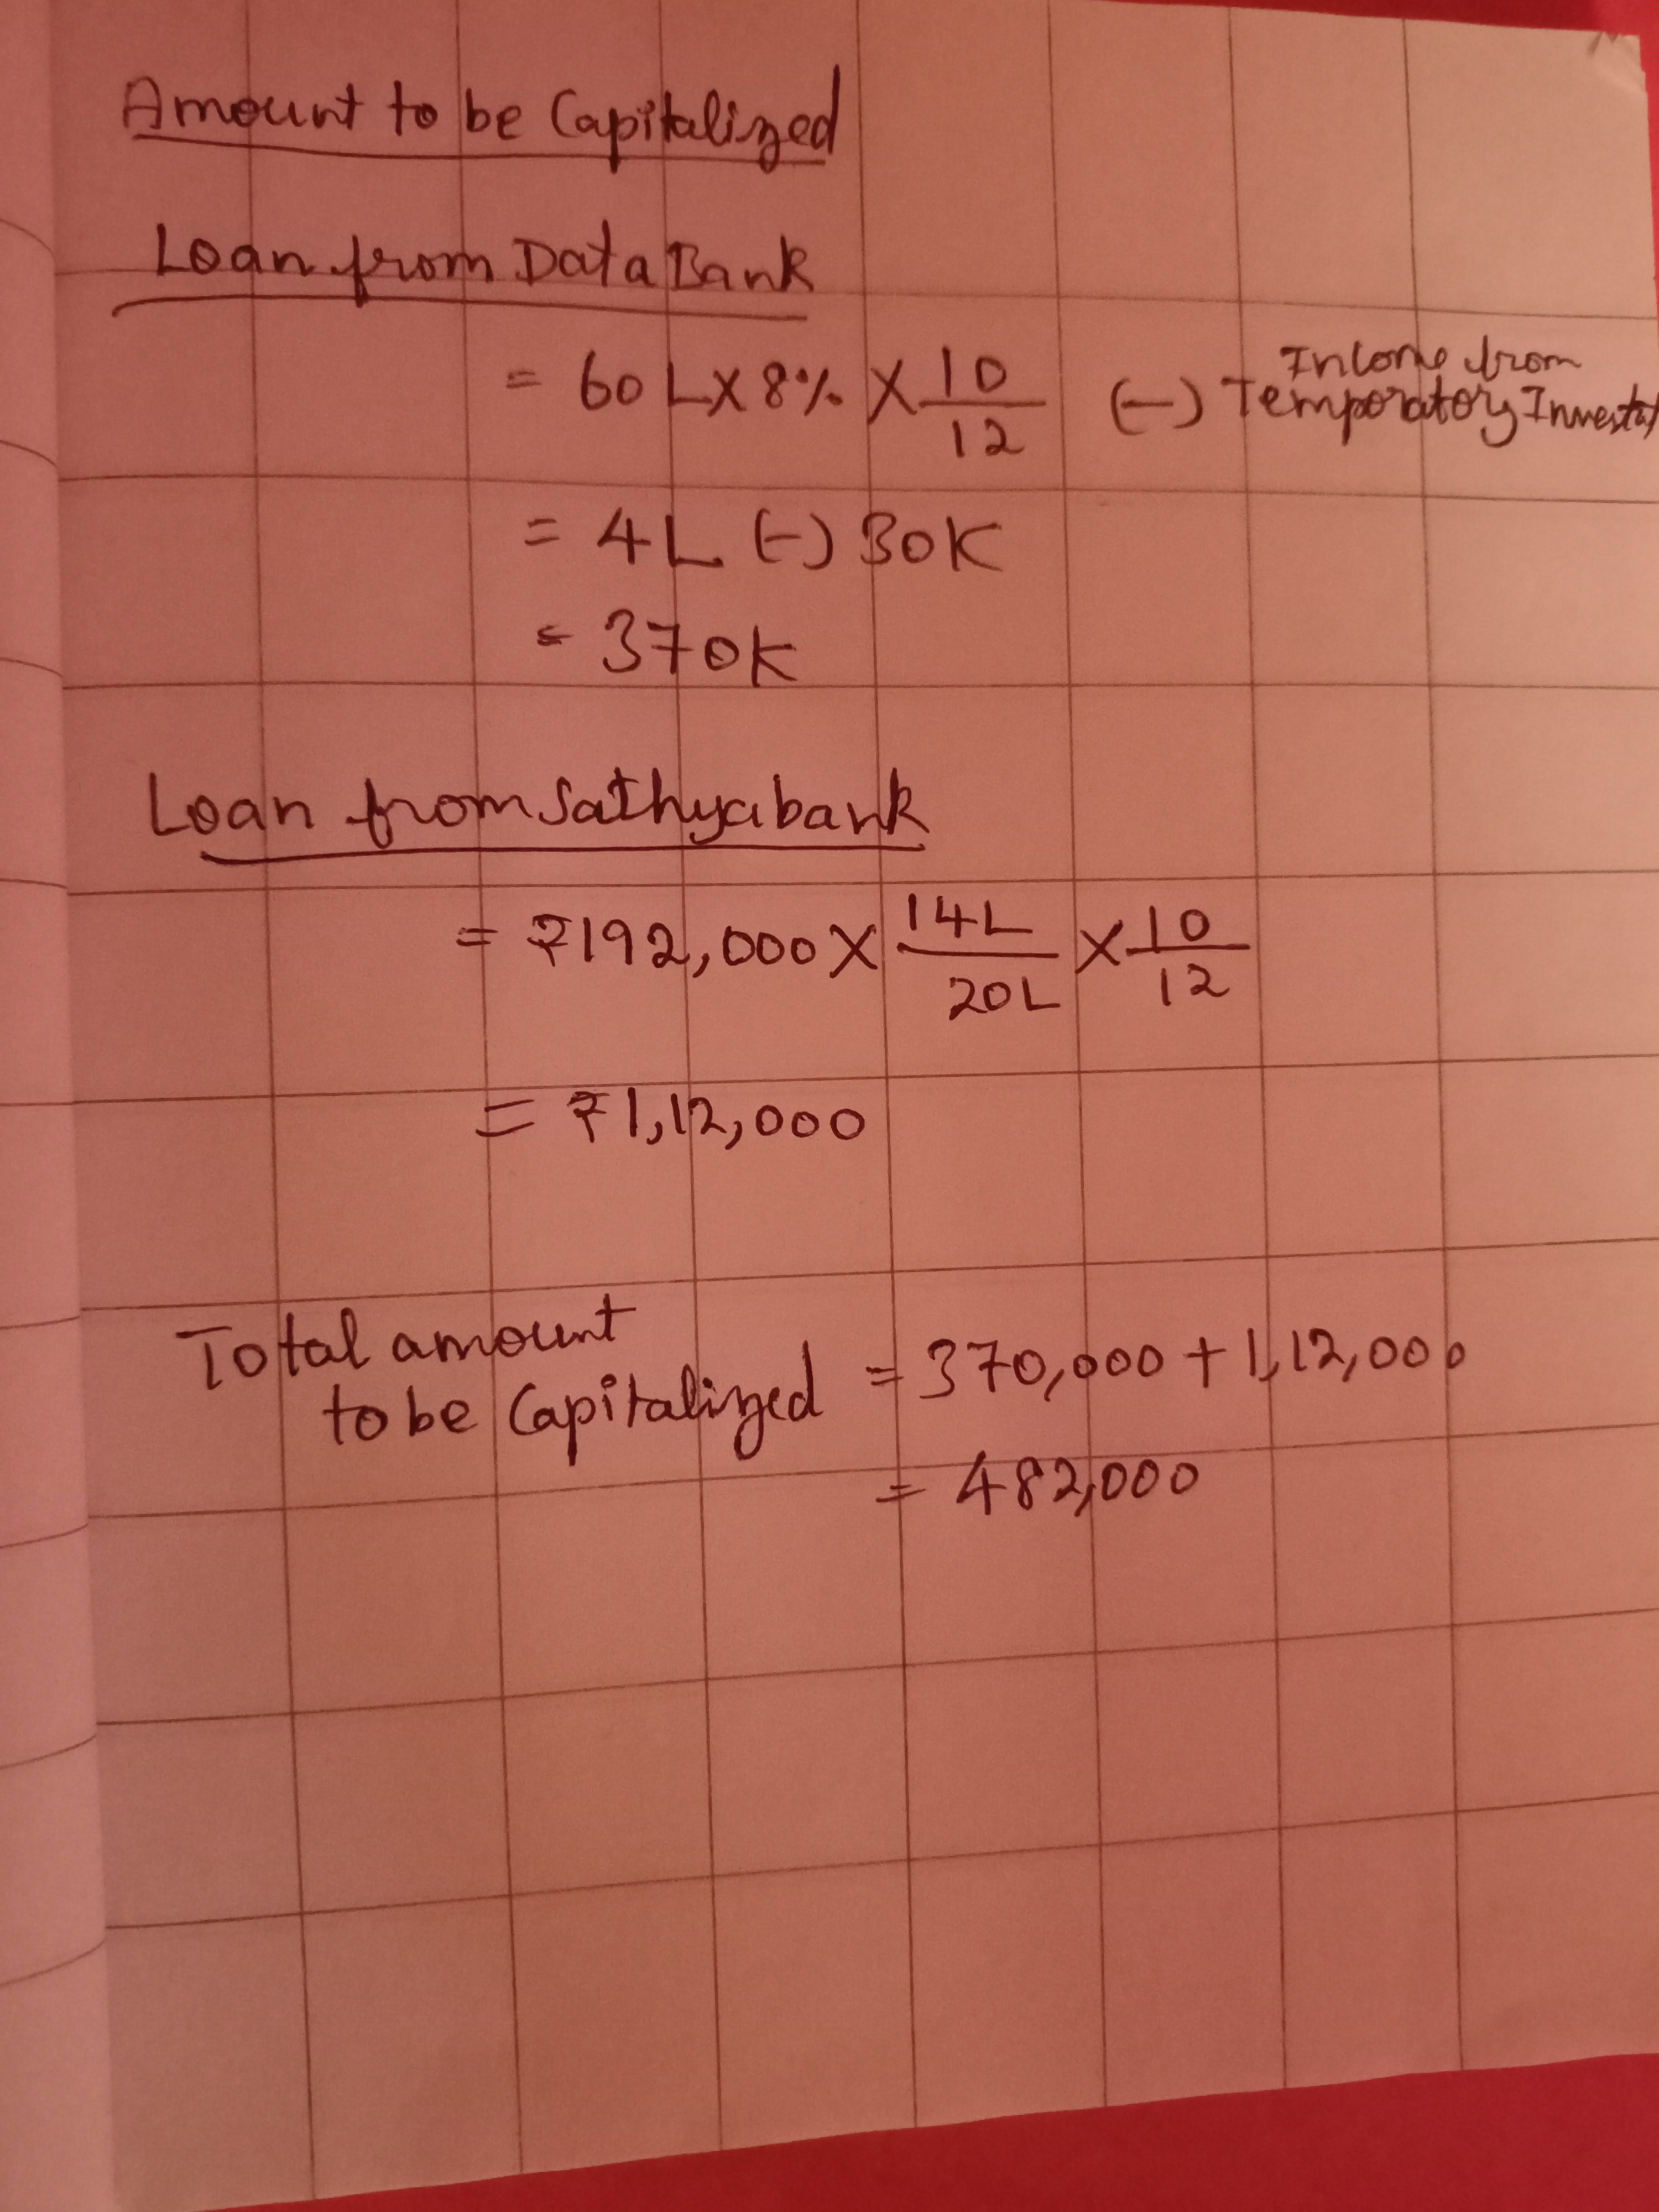 Amount to be Capitalized
Loan from Data Bank
= 60 L X 8% X 10/12 (-) Income from Temporatory
= 4L (-) 30K
= 370K
Loan from Sathyabank
= ₹192,000 X 14L/20L X 10/12
= ₹1,12,000
Total amount to be Capitalized = 370,000 + 1,12,000
= 482,000